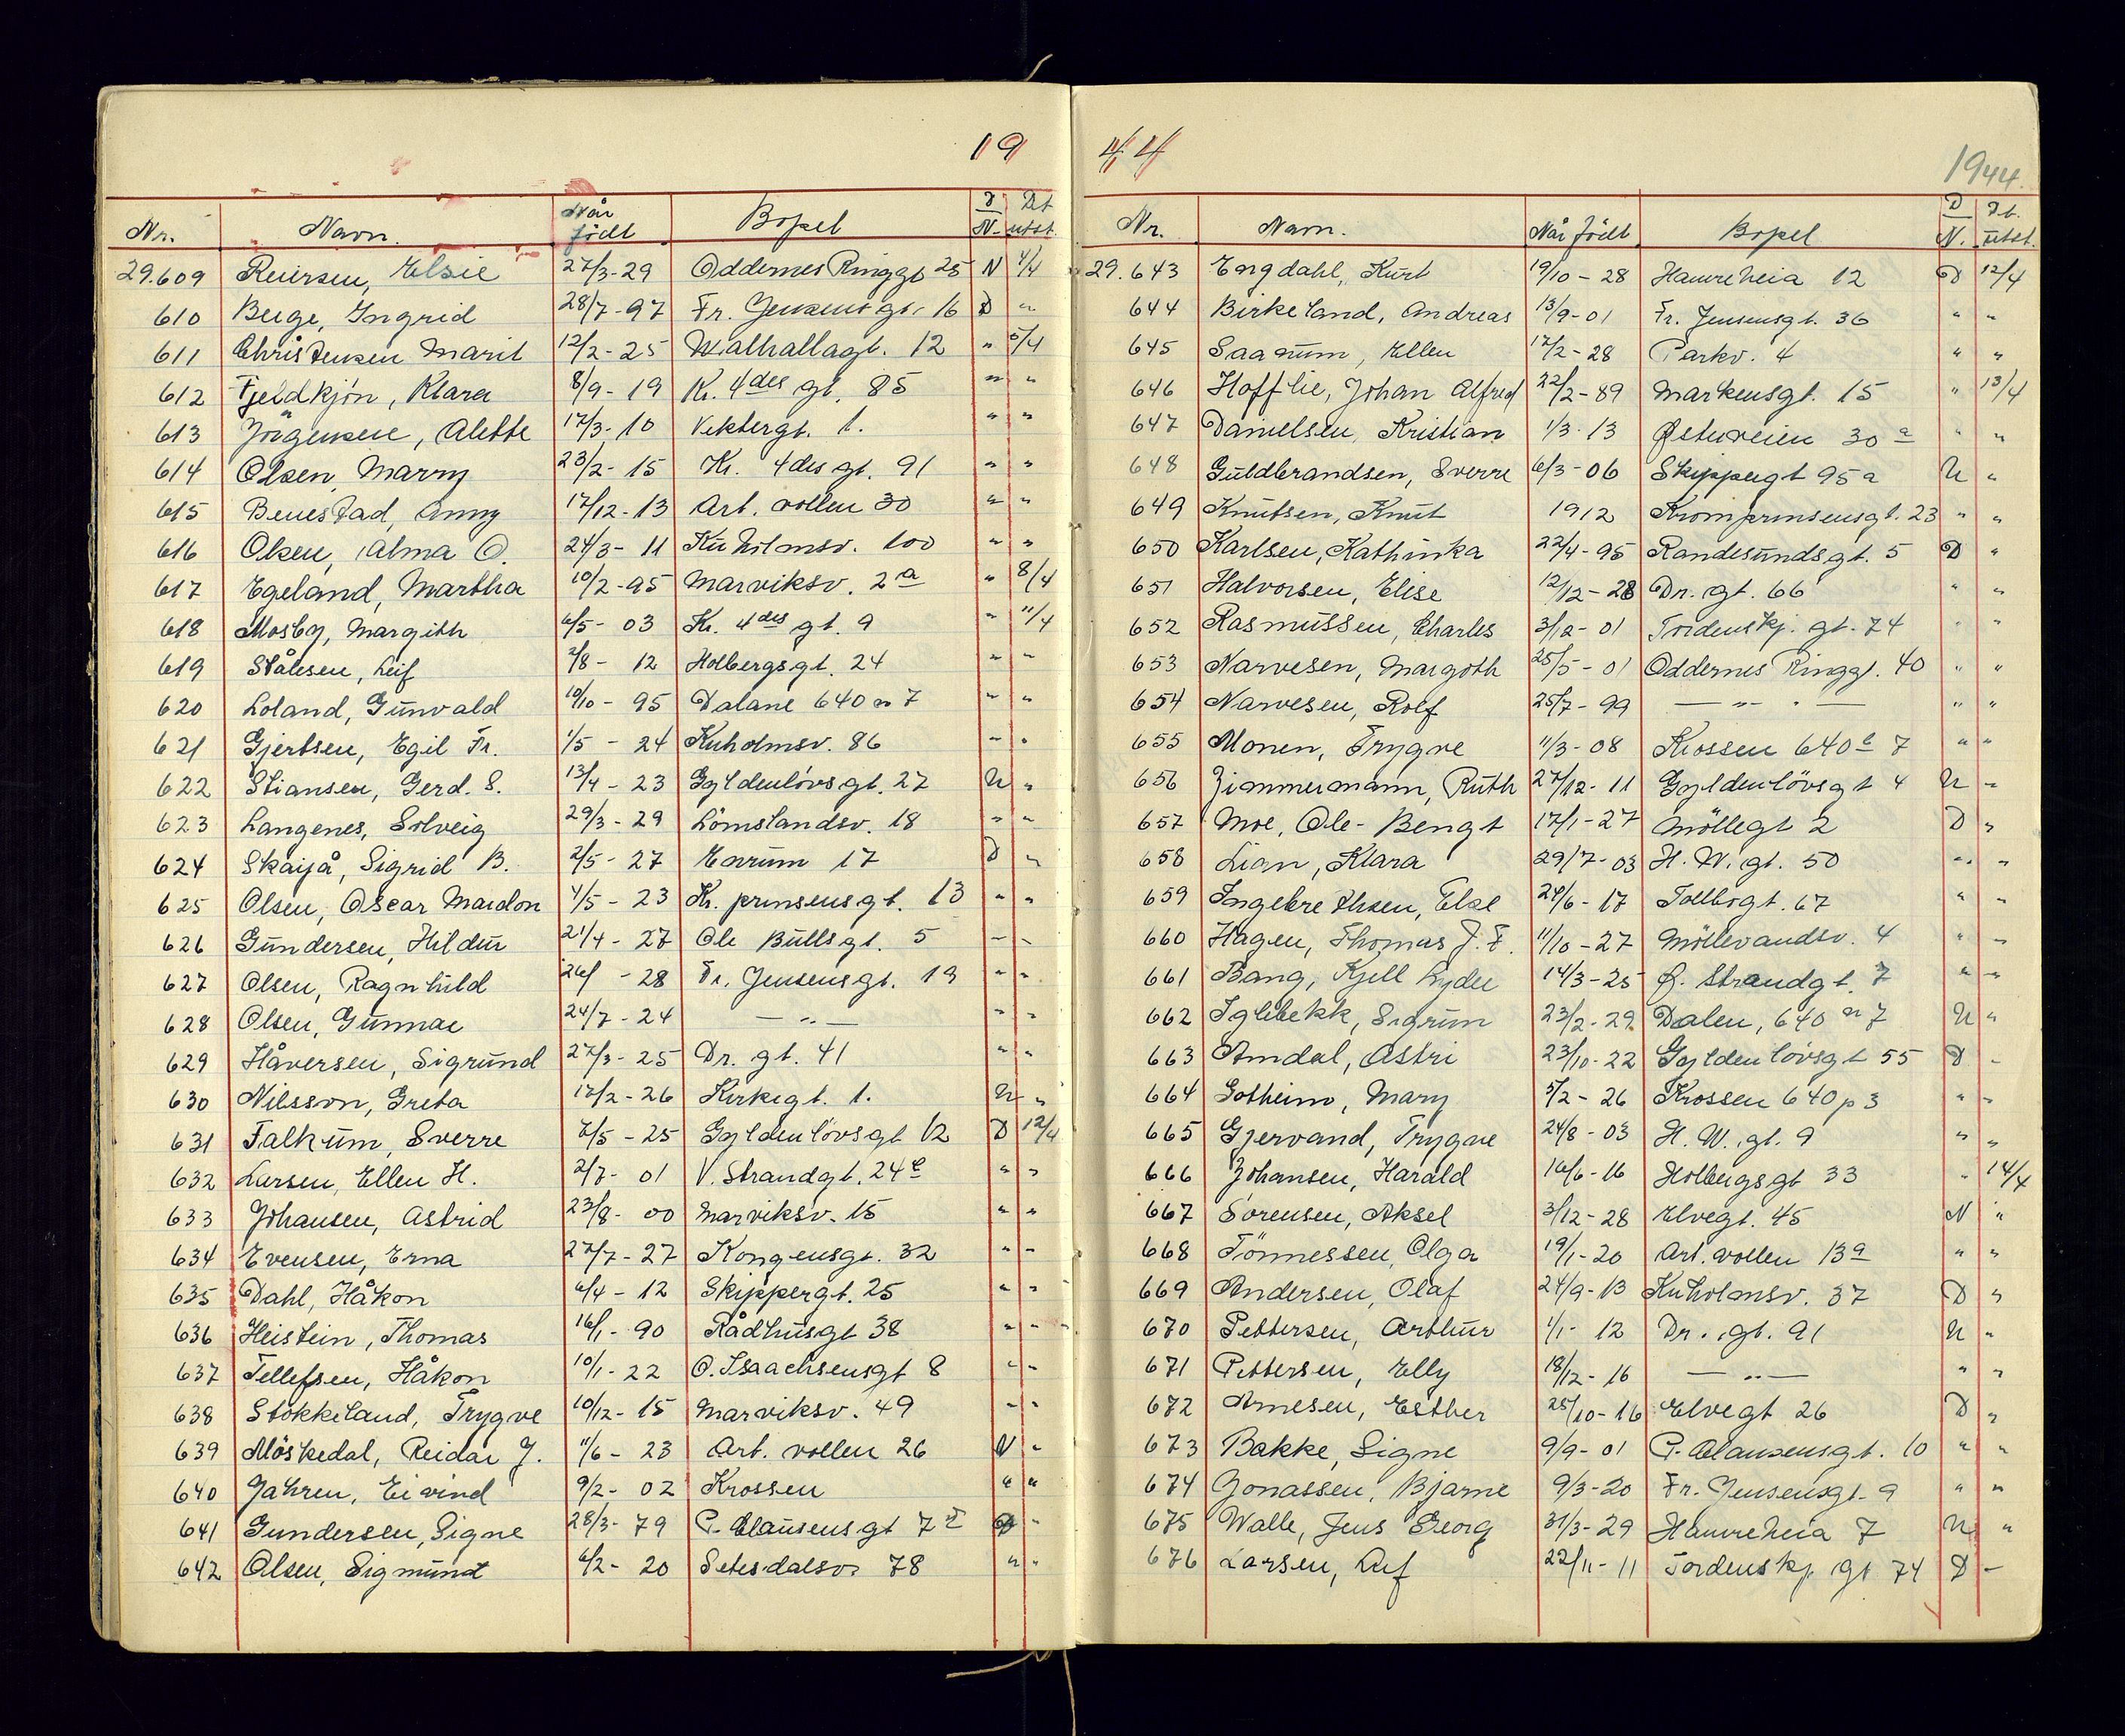 19
Nr. Navn. Når født Bopel D/N. Dt utst.
29.609 Reiersen, Elsie 27/3-29 Oddernes Ringgt 25 N 4/4
610 Berge, Ingrid 28/7-97 Fr. Jensens gt. 16 D "
611 Christensen Marit 12/2-25 Walhallagt. 12 " 5/4
612 Fjeldkjön, Klara 8/9-19 Kr. 4des gt. 85 " "
613 Jörgensen, Alette 17/3-10 Vektergt. 1. " "
614 Olsen, Marry 23/2-15 Kr. 4des gt. 91 " "
615 Benestad, Anny 17/12-13 Art. vollen 30 " "
616 Olsen, Alma O. 24/3-11 Kuholmsv. 100 " "
617 Egeland, Martha 10/2-95 Marviksv. 2a " 8/4
618 Mosby, Margith 6/5-03 Kr. 4des gt. 9 " 11/4
619 Stålesen, Leif 2/8-12 Holbergsgt. 24 " "
620 Loland, Gunvald 10/10-95 Dalane 640 n 7 " "
621 Gjertsen, Egil Fr. 1/5-24 Kuholmsv. 86 " "
622 Stiansen, Gerd. S. 13/4-23 Gyldenlövsgt. 27 N "
623 Langenes, Solveig 29/3-29 Lömslandsv. 18 " "
624 Skaijå, Sigrid B. 2/5-27 17 D "
625 Olsen, Oscar Mardon 4/5-23 Kr. prinsensgt. 13 " "
626 Gundersen, Hildur 21/4-27 Ole Bullsgt. 5 " "
627 Olsen, Ragnhild 26/ -28 Fr. Jensensgt. 19 " "
628 Olsen, Gunnar 24/7-24 — " — " "
629 Håversen, Sigrund 27/3-25 Dr. gt. 41 " "
630 Nilsson, Greta 17/2-26 Kirkegt. 1. N "
631 Falkum, Sverre 7/5-25 Gyldenlövsgt 12 D 12/4
632 Larsen, Ellen H. 2/7-01 V. Strandgt. 24e " "
633 Johansen, Astrid 23/8-00 Marviksv. 15 " "
634 Evensen, Erna 27/7-27 Kongensgt. 32 " "
635 Dahl, Håkon 6/4-12 Skippergt. 25 " "
636 Heistein, Thomas 16/1-90 Rådhusgt 38 " "
637 Tellefsen, Håkon 10/1-22 O. Isaachsensgt 8 " "
638 Stokkeland, Trygve 10/12-15 Marviksv. 49 " "
639 Möskedal, Reidar J. 11/6-23 Art. vollen 26 N "
640 Jahren, Eivind 9/2-02 Krossen " "
641 Gundersen, Signe 28/3-79 P. Clausensgt 7 D "
642 Olsen, Sigmund 6/2-20 Setesdalsv. 78 " "
44
1944.
Nr. Navn. Når födt Bopel D/N. Dt. utst.
29.643 Engdahl, Kurt 19/10-28 Hamreheia 12 D 12/4
644 Birkeland, Andreas 13/9-01 Fr. Jensensgt. 36 " "
645 Saanum, Ellen 17/2-28 Parkv. 4 " "
646 Hoff-lie, Johan Alfred 22/2-89 Markensgt. 15 " 13/4
647 Danielsen, Kristian 1/3-13 Østerveien 30a " "
648 Guldbrandsen, Sverre 6/3-06 Skippergt 95a N "
649 Knutsen, Knut 1912 Kronprinsensgt. 23 " "
650 Karlsen, Kathinka 22/4-95 Randesundsgt. 5 D "
651 Halvorsen, Elise 12/12-28 Dr. gt. 66 " "
652 Rasmussen, Charles 3/12-01 Tordenskj. gt. 74 " "
653 Narvesen, Margoth 25/5-01 Oddernes Ringgt. 40 " "
654 Narvesen, Rolf 25/7-99 — " — " "
655 Monen, Trygve 11/3-08 Krossen 640e 7 " "
656 Zimmermann, Ruth 27/12-11 Gyldenlövsgt 4 N "
657 Moe, Ole-Bengt 17/1-27 Möllegt 2 D "
658 Lian, Klara 29/7-03 H.W. gt. 50 " "
659 Ingebrethsen, Else 24/6-17 Tollbogt. 67 " "
660 Hagen, Thomas J. F. 11/10-27 Möllevandsv. 4 " "
661 Bang, Kjell Lyder 14/3-25 Ø. Strandgt. 7 " "
662 Iglebekk, Sigrun 23/2-29 Dalen, 640 n 7 N "
663 Amdal, Astri 23/10-22 Gyldenlövsgt 55 D "
664 Gotheim, Mary 5/2-26 Krossen 640 p 3 " "
665 Gjervand, Trygve 24/8-03 H.W. gt. 9 " "
666 Johansen, Harald 16/6-16 Holbergsgt 33 " 14/4
667 Sörensen, Aksel 3/12-28 Elvegt. 45 N "
668 Tönnessen, Olga 19/1-20 Art. vollen 13a " "
669 Andersen, Olaf 24/9-13 Kuholmsv. 37 D "
670 Pettersen, Arthur 1/1-12 Dr. gt. 91 N "
671 Pettersen, Elly 18/12-16 — " — " "
672 Arnesen, Esther 25/10-16 Elvegt 26 D "
673 Bakke, Signe 9/9-01 P. Clausensgt. 10 " "
674 Jonassen, Bjarne 9/3-20 Fr. Jensensgt. 9 " "
675 Walle, Jens Georg 31/3-29 Hamreheia 7 N "
676 Larsen, Leif 22/11-11 Tordenskj. gt 74 D "